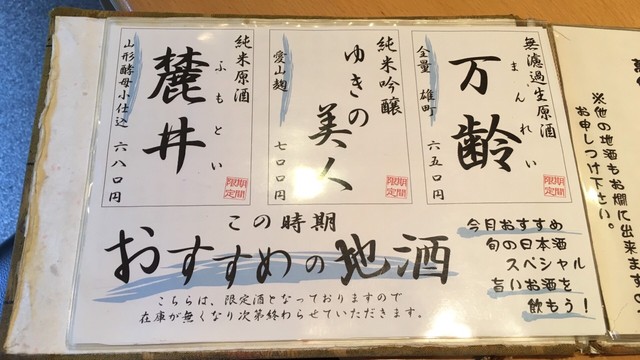 無濾過生原酒
まんれい
万齢
全量 雄町
六五〇円
期間
限定
純米吟醸
ゆきの
美人
愛山麹
七〇〇円
期間
限定
純米原酒
ふもとい
麓井
山形酵母小仕込
六八〇円
期間
限定
この時期
おすすめの地酒
こちらは、限定酒となっておりますので
在庫が無くなり次第終わらせていただきます。
今月おすすめ
旬の日本酒
スペシャル
旨いお酒を
飲もう!
※他の地酒もお燗に出来ます
お申しつけ下さい。